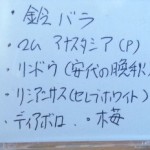 ・銘バラ
・マム アナスタシア(P)
・リンドウ(安代の晩秋)
・リシアンサス(セレブホワイト)
・ディアボロ ・木苺